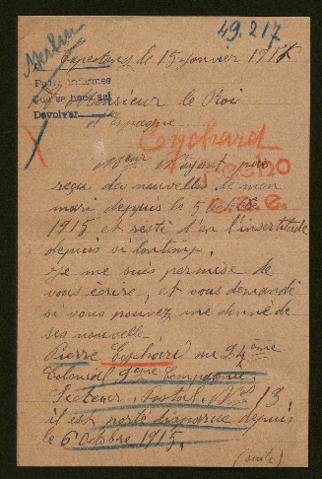 49.217
Berlin
le 15 janvier 191
Pedir informes
Devolver
Monsieur le Roi
d'Espagne
Eychard
Hecho
N'ayant pas
reçu des nouvelles de mon
mari depuis le 5
1915 et resté d'en l'insertitude
depuis si lontemp.
Je me suis permise de
vous écrire, et vous demandé
si vous pouvez me donné de
ses nouvelle
Pierre Eychard au 24ème
Colonial 9ème Compagnie
Secteur Postal N° 13.
il est porté disparue depuis
le 6 octobre 1915.
(suite)